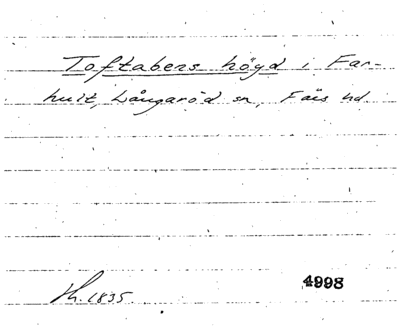 Toftabens högd i Far-
hult, Långaröd sn, Färs hd
Th. 1835
4998